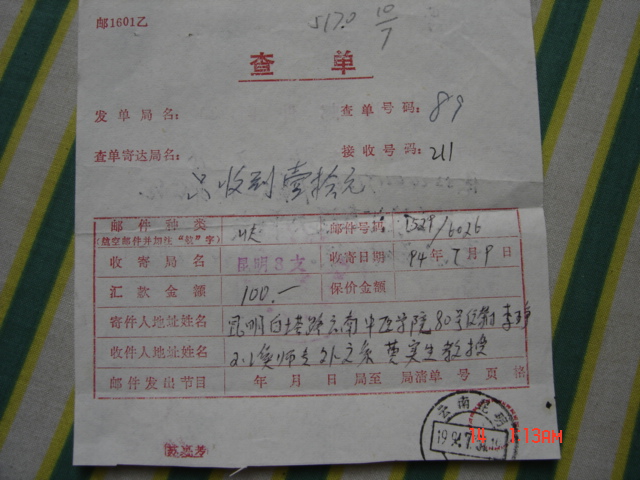 邮1601乙
5170 10/7
查单
发单局名： 查单号码：89
查单寄达局名： 接收号码：211
只收到壹拾元
邮件种类 邮件号码
(航空邮件并加注“航”字)
收寄局名 昆明3支 收寄日期 94年7月9日
汇款金额 100.— 保价金额
寄件人地址姓名 昆明白塔路云南中医学院80号 李
收件人地址姓名 师专外文系 黄实生教授
邮件发出节目 年 月 日 局至 局清单 号 页 格
云南昆明
14 1:13AM